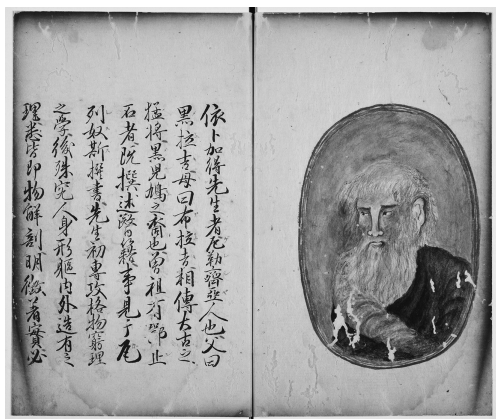 依卜加得先生者厄勒齊亜人也父曰
黒拉吉母曰布拉吉相傳太古之
猛将黒児鳩之裔也曽祖有鄂止
石者既撰述路籍事見于厄
列奴斯撰書先生初専攻格物窮理
之學後殊究人身形軀内外造有之
理悉皆即物解剖明徴著實必